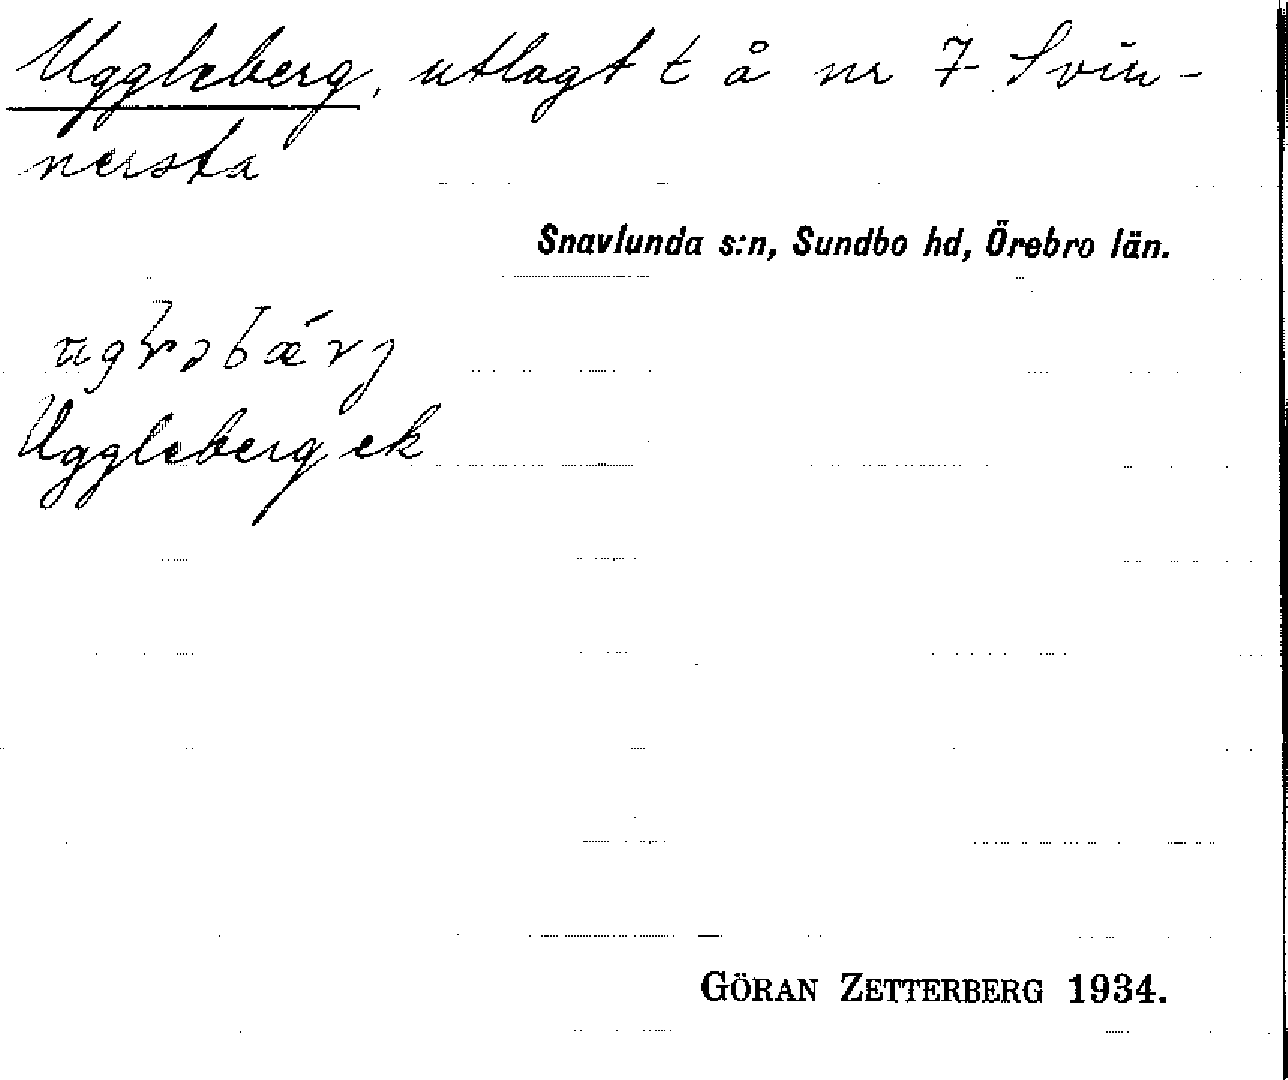 Uggleberg, utlagt t å nr 7 Svin-
nersta
Snavlunda s:n, Sundbo hd, Örebro län.
Uggleberg ek
GÖRAN ZETTERBERG 1934.